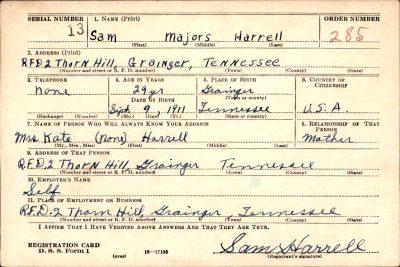 SERIAL NUMBER 1. NAME (Print) ORDER NUMBER
13 Sam Majors Harrell 285
(First) (Middle) (Last)
2. ADDRESS (Print)
R.F.D.2 Thorn Hill, Grainger, Tennessee
(Number and street or R. F. D. number) (Town) (County) (State)
3. TELEPHONE 4. AGE IN YEARS 5. PLACE OF BIRTH 6. COUNTRY OF CITIZENSHIP
None 29 yr Grainger
(Town or county)
DATE OF BIRTH
Sept 9, 1911 Tennessee U.S.A
(Exchange) (Number) (Mo.) (Day) (Yr.) (State or country)
7. NAME OF PERSON WHO WILL ALWAYS KNOW YOUR ADDRESS 8. RELATIONSHIP OF THAT PERSON
Mrs. Kate (none) Harrell Mother
(Mr., Mrs., Miss) (First) (Middle) (Last)
9. ADDRESS OF THAT PERSON
R.F.D.2 Thorn Hill, Grainger Tennessee
(Number and street or R. F. D. number) (Town) (County) (State)
10. EMPLOYER'S NAME
Self
11. PLACE OF EMPLOYMENT OR BUSINESS
R.F.D.-2 Thorn Hill Grainger Tennessee
(Number and street or R. F. D. number) (Town) (County) (State)
I AFFIRM THAT I HAVE VERIFIED ABOVE ANSWERS AND THAT THEY ARE TRUE.
REGISTRATION CARD
D. S. S. Form 1 (over) 16-17105 Sam Harrell
(Registrant's signature)